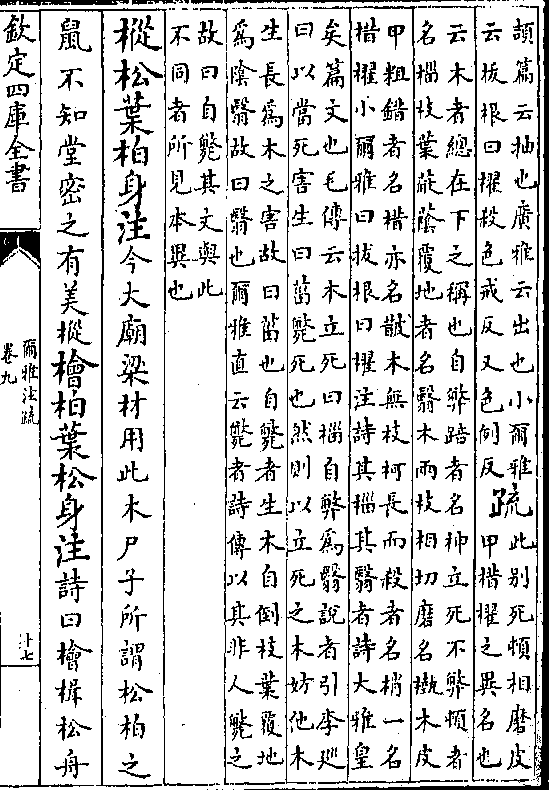 頡篇云抽也廣雅云出也小爾雅
云拔根曰擢殺色戒反又色例反
疏
此别死頓相磨皮
甲楷擢之異名也
云木者總在下之稱也自斃踣者名柛立死不斃頓者
名椔枝葉蔽蔭覆地者名翳木兩枝相切磨名㯙木皮
甲粗錯者名楷亦名皵木無枝柯長而殺者名梢一名
楷擢小爾雅曰拔根曰擢注詩其椔其翳者詩大雅皇
矣篇文也毛傳云木立死曰椔自斃爲翳說者引李廵
曰以當死害生曰菑斃死也然則以立死之木妨他木
生長爲木之害故曰菑也自斃者生木自倒枝葉覆地
爲陰翳故曰翳也爾雅直云斃者詩傳以其非人斃之
故曰自斃其文與此
不同者所見本異也
樅松葉柏身注今大廟梁材用此木尸子所謂松柏之
鼠不知堂密之有美樅檜柏葉松身注詩曰檜楫松舟
欽定四庫全書
爾雅注疏
卷九
廿七